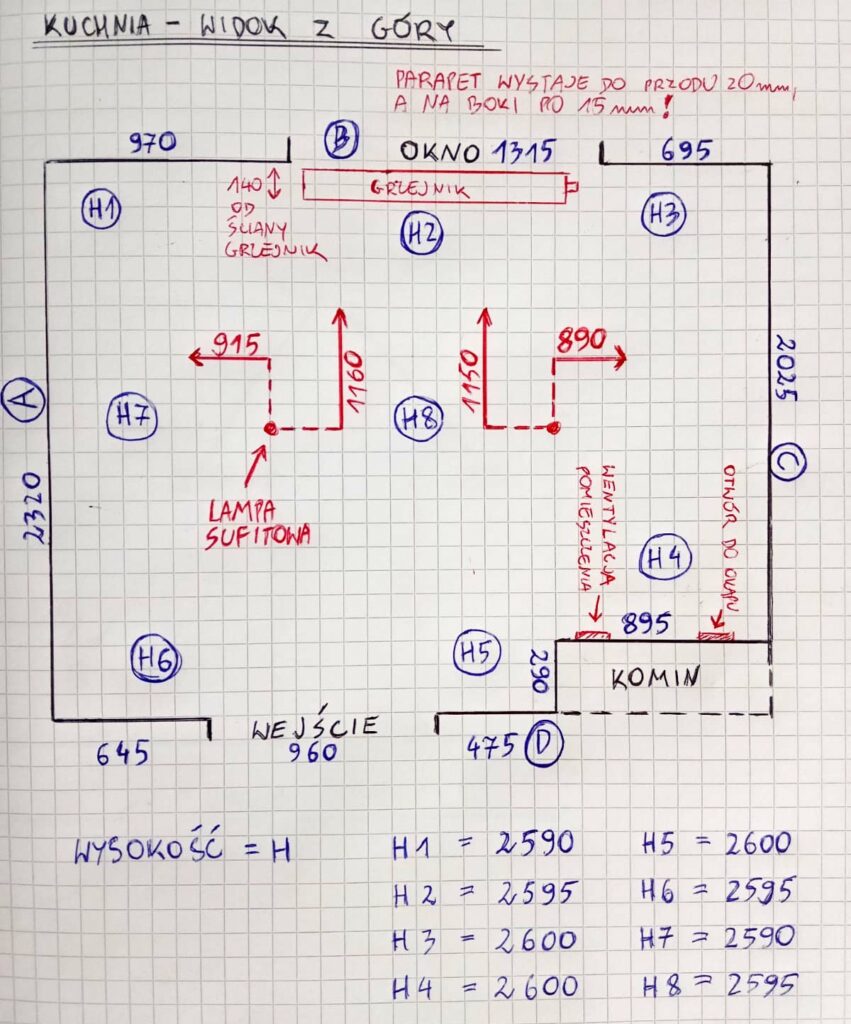 KUCHNIA - WIDOK Z GÓRY
PARAPET WYSTAJE DO PRZODU 20mm,
A NA BOKI PO 15mm!
970
B
OKNO 1315
695
GRZEJNIK
140
OD
ŚCIANY
GRZEJNIK
H1
H2
H3
915
1160
1150
890
2025
A
H7
H8
C
2320
LAMPA
SUFITOWA
WENTYLACJA
POMIESZCZENIA
OTWÓR DO OKAPU
H4
895
H6
H5
290
KOMIN
WEJŚCIE
645
960
475 D
WYSOKOŚĆ = H
H1 = 2590
H5 = 2600
H2 = 2595
H6 = 2595
H3 = 2600
H7 = 2590
H4 = 2600
H8 = 2595